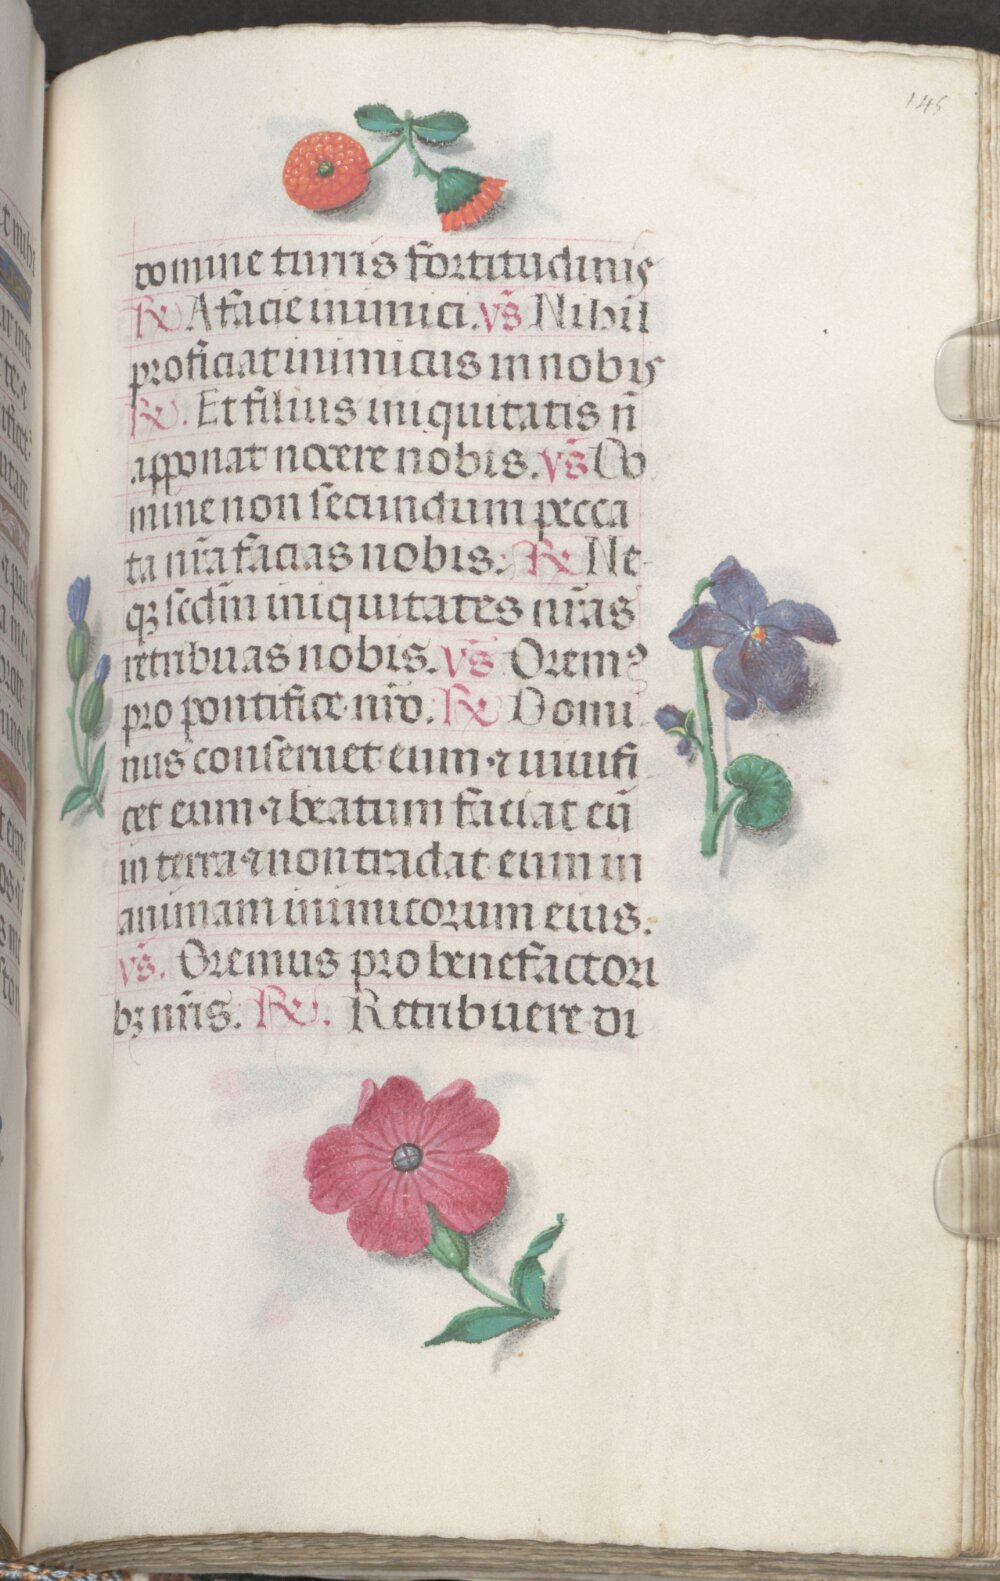 145
domine turris fortitudinis
℟ A facie inimici. v̄s Nihil
proficiat inimicus in nobis
℟. Et filius iniquitatis n̄
apponat nocere nobis. v̄s Do
mine non secundum pecca
ta nr̄a facias nobis. ℟ Ne
qꝫ scd̄m iniquitates nr̄as
retribuas nobis. v̄s Oremꝰ
pro pontifice nr̄o. ℟ Domi
nus conseruet eum ⁊ uiuifi
cet eum ⁊ beatum faciat eū
in terra ⁊ non tradat eum in
animam inimicorum eius.
v̄s. Oremus pro benefactori
bꝫ nr̄is. ℟. Retribuere di